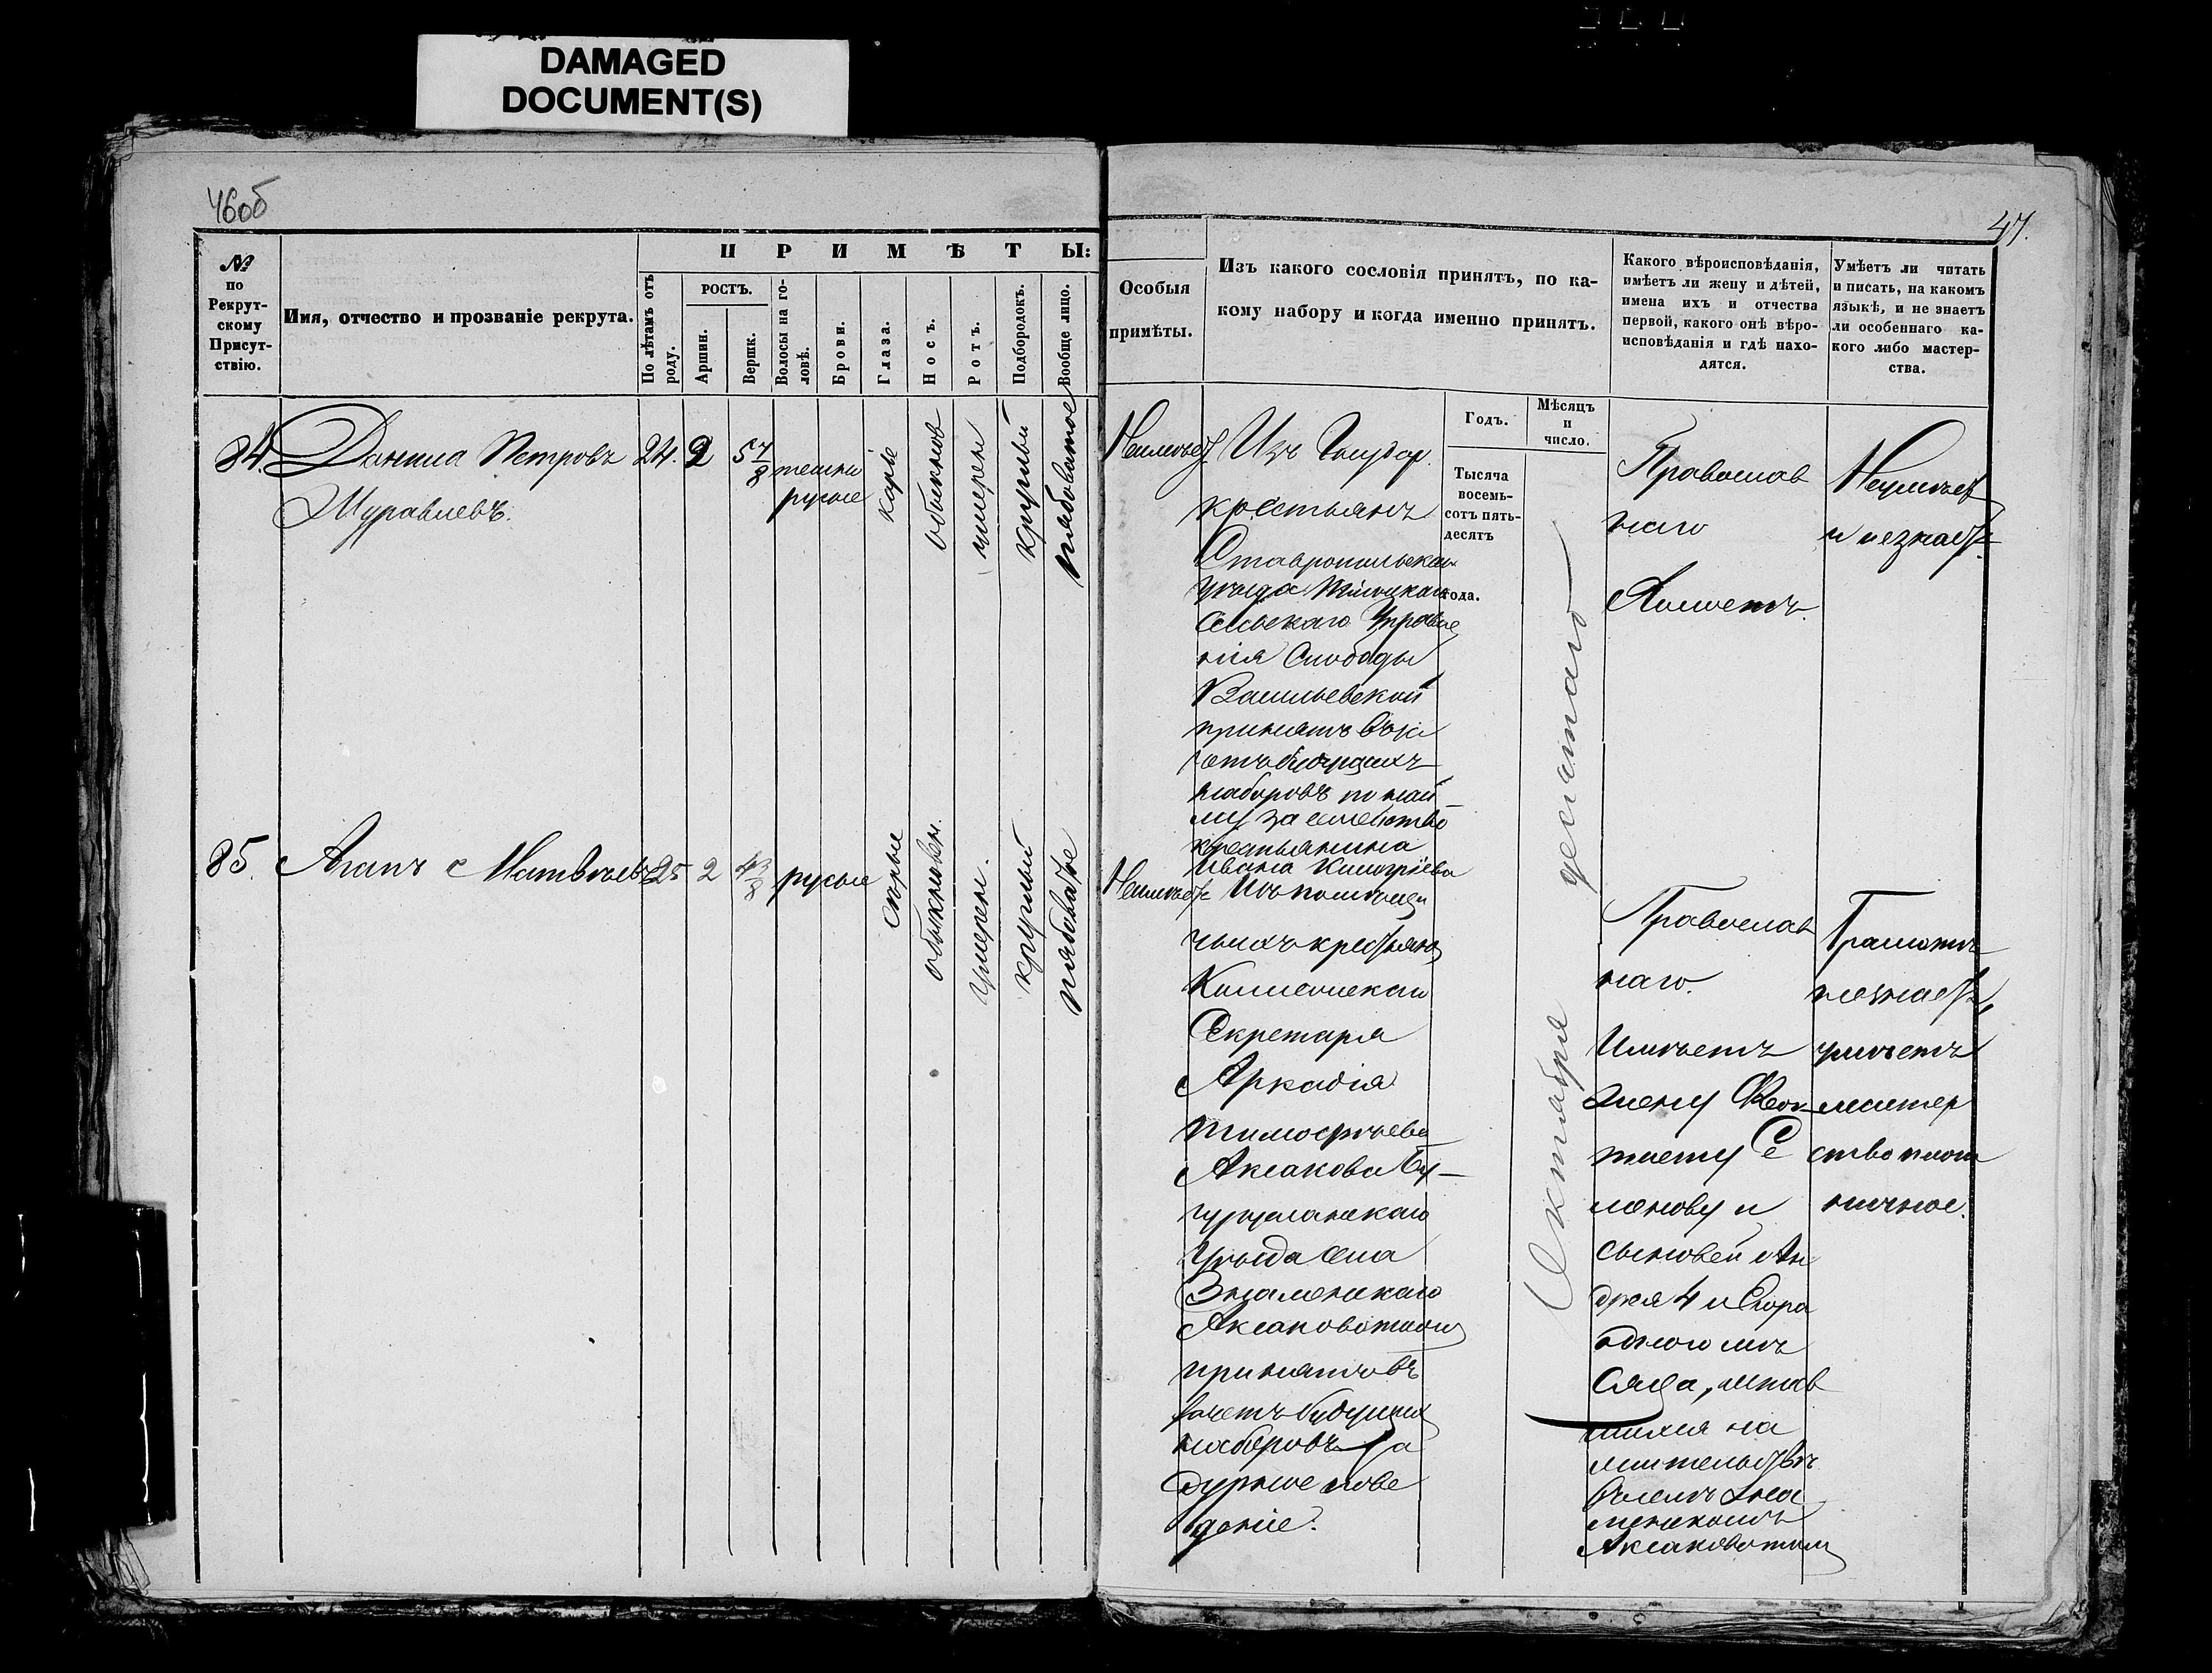 DAMAGED
DOCUMENT(S)
46об
47.
№
по
Рекрут-
скому
Присут-
ствію.
Имя, отчество и прозваніе рекрута.
П Р И М Ѣ Т Ы:
По лѣтамъ отъ
роду.
РОСТЪ.
Аршин.
Вершк.
Волосы на го-
ловѣ.
Брови.
Глаза.
Носъ.
Ротъ.
Подбородокъ.
Вообще лицо.
Особыя
примѣты.
Изъ какого сословія принятъ, по ка-
кому набору и когда именно принятъ.
Какого вѣроисповѣданія,
имѣетъ ли жену и дѣтей,
имена ихъ и отчества
первой, какого онѣ вѣро-
исповѣданія и гдѣ нахо-
дятся.
Умѣетъ ли читать
и писать, на какомъ
языкѣ, и не знаетъ
ли особеннаго ка-
кого либо мастер-
ства.
Годъ.
Мѣсяцъ
и
число.
Тысяча
восемь-
сотъ пять-
десятъ
года.
84. Данила Петровъ 24. 2 5 7/8
Журавлевъ.
темно
русые
каріе
обыкнов
умерен
круглый
рябоватое
Неимѣетъ
Изъ Государ.
крестьянъ
Ставропольскаго
уѣзда
Сельскаго Управле
нія Слободы
Васильевской
принятъ въ за
четъ будущихъ
наборовъ по най
му за семейство
крестьянина
Ивана
Православ
наго
Холостъ.
Неумѣетъ
и незнаетъ.
85. Агапъ Матвѣевъ 25 2 4 3/8 русые
сѣрые
обыкновен.
умерен.
круглый
рябоватое
Неимѣетъ
Изъ помѣщи
чьихъ крестьянъ
Коллежскаго
Секретаря
Аркадія
Тимофѣева
Аксакова Бу-
гурусланскаго
Уѣзда села
Знаменскаго
Аксаково тожъ
принятъ въ
зачетъ будущихъ
наборовъ за
дурное пове
деніе.
Октября
десятаго
Православ
наго.
Имѣетъ
жену Фек
тисту Се
менову и
сыновей Ан
дрея 4 и Егора
одного мѣ
сяца, остав
шихся на
жительствѣ
въ селѣ Зна
менскомъ
Аксаково тожъ
Грамотѣ
незнаетъ,
умѣетъ
мастер
ство плот
ничное.